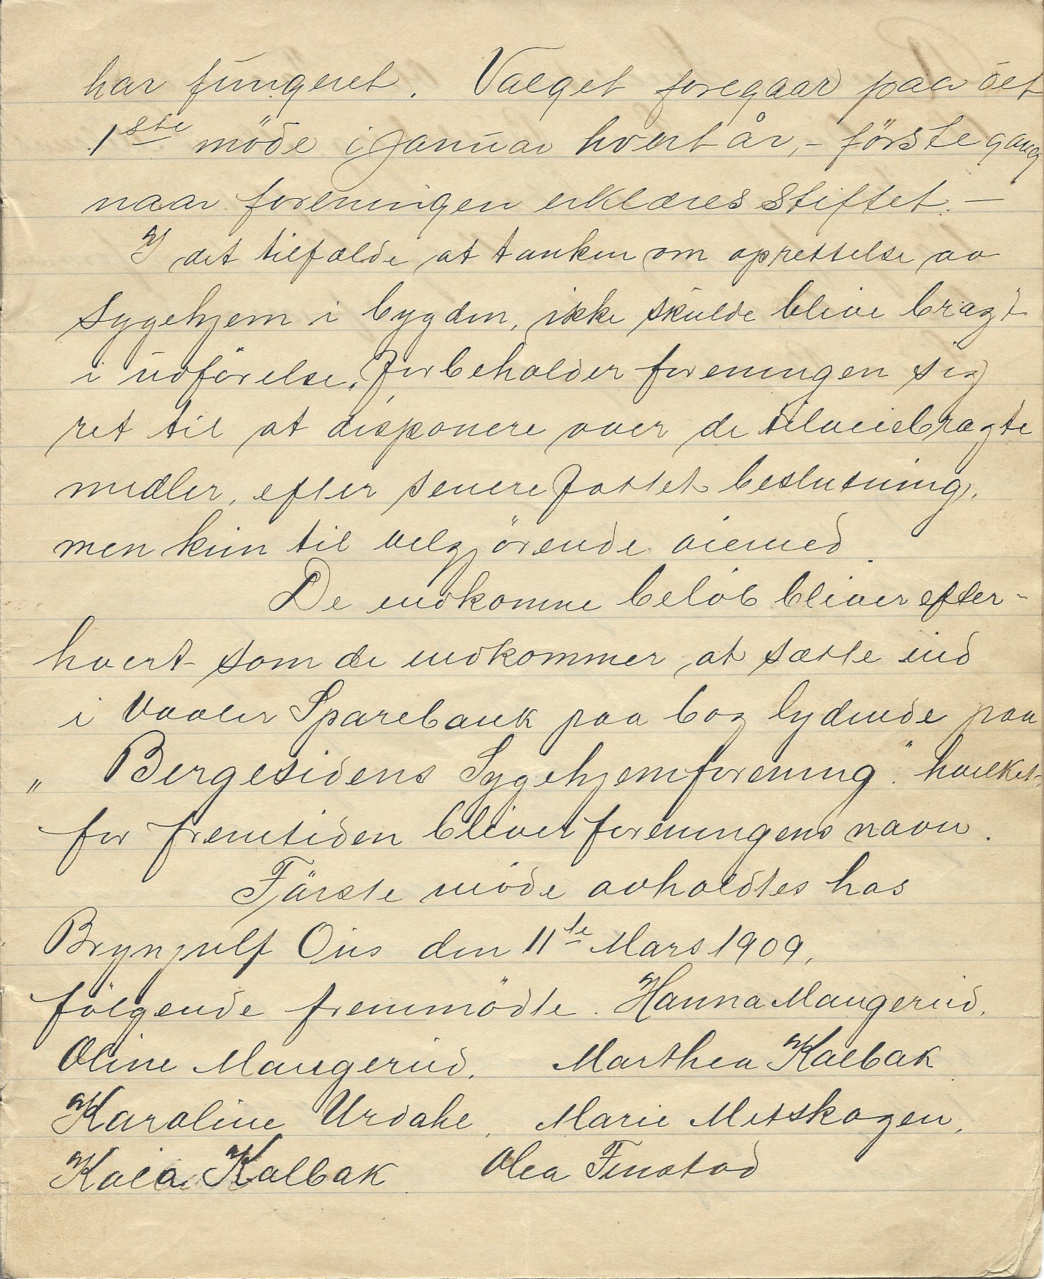 har fungeret. Valget foregaar paa det
1ste møde i Januar hvert år, - første gang
naar foreningen erklæres stiftet. -
I det tilfælde at tanken om oprettelse av
Sygehjem i bygden, ikke skulde blive bragt
i udførelse, forbeholder foreningen sig
ret til at disponere over de tilveiebragte
midler, efter senere fattet beslutning,
men kun til velgjørende øiemed
De indkomne beløb bliver efter-
hvert som de indkommer at sætte ind
i Vaaler Sparebank paa bog lydende paa
„ Bergesidens Sygehjemforening " hvilket
for fremtiden bliver foreningens navn.
Første møde avholdtes hos
Brynjulf Ous den 11te Mars 1909,
følgende fremmødte. Hanna Maugerud,
Oline Maugerud, Marthea Kalbak
Karoline Urdahl, Marie Mitskogen,
Kaia Kalbak Olea Finstad